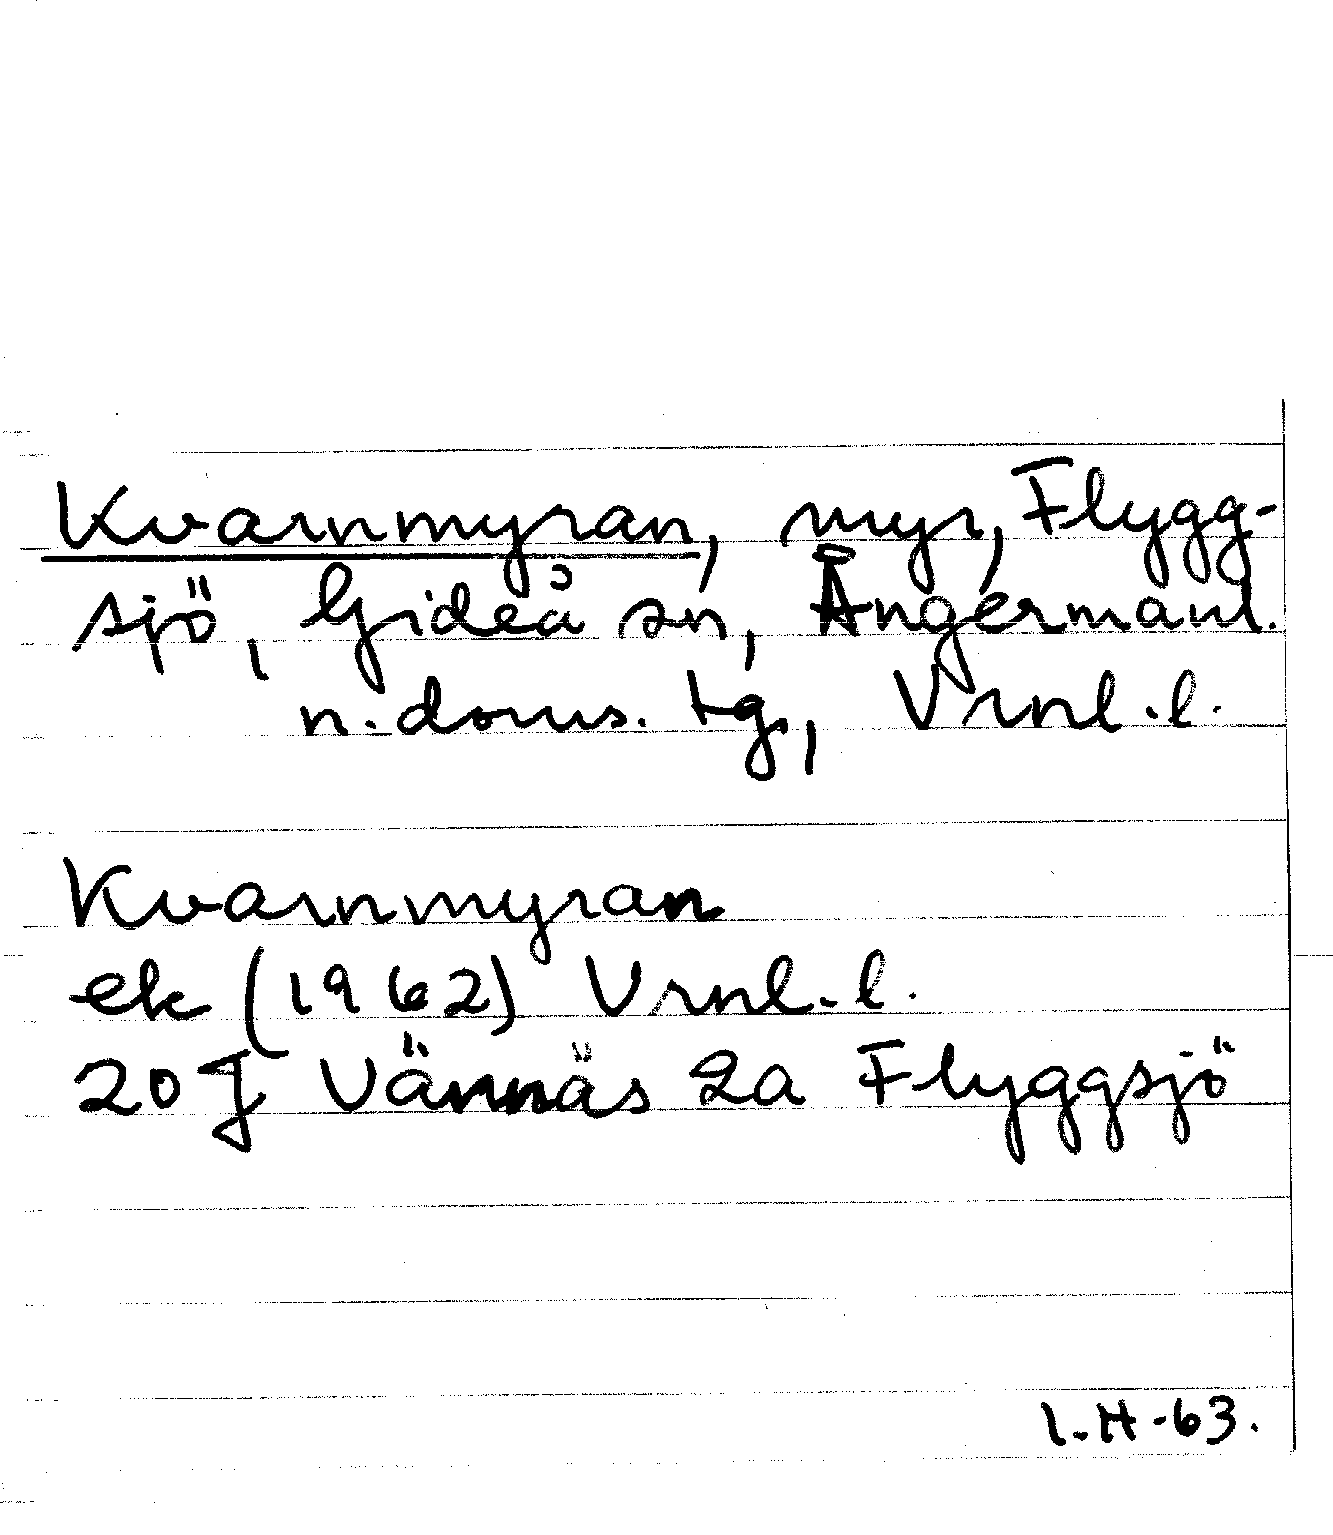 Kvarnmyran, myr, Flygg-
sjö, Gideå sn, Ångermanl.
n. doms. tg, Vrnl.l.
Kvarnmyran
ek (1962) Vrnl.l.
20 J Vännäs 2a Flyggsjö
I.H-63.